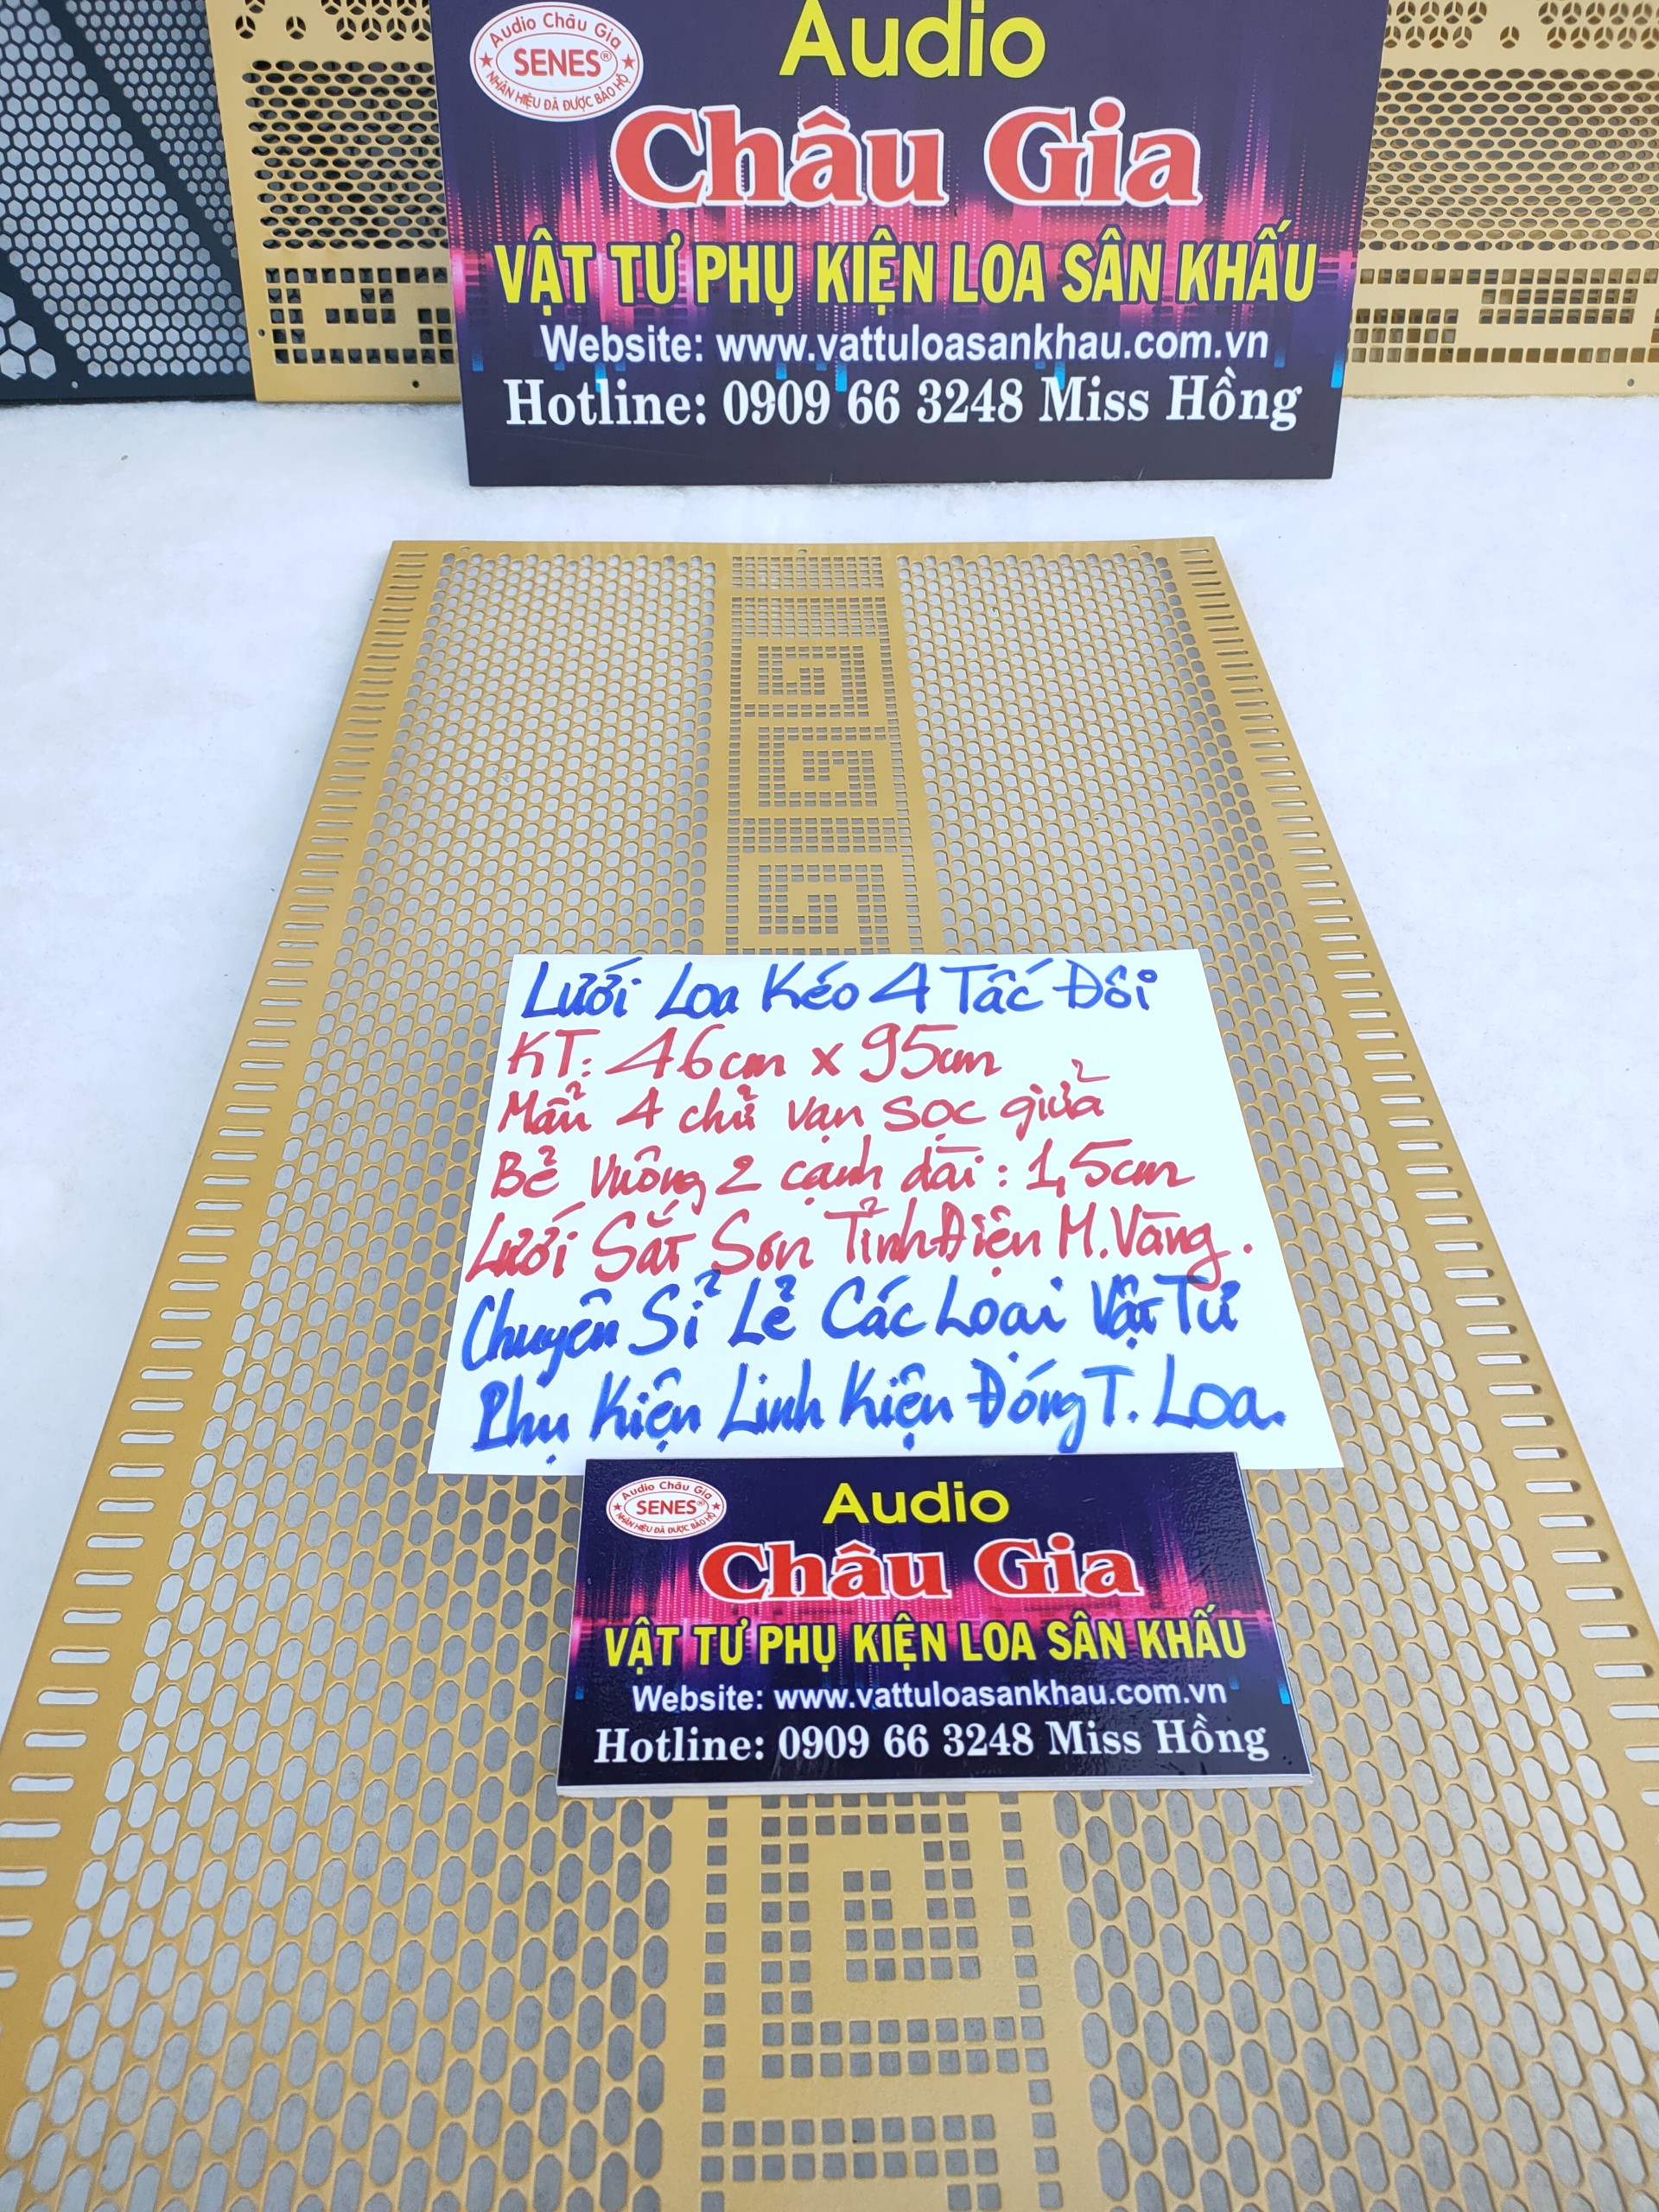 Audio Châu Gia
SENES®
NHÃN HIỆU ĐÃ ĐƯỢC BẢO HỘ
Audio
Châu Gia
VẬT TƯ PHỤ KIỆN LOA SÂN KHẤU
Website: www.vattuloasankhau.com.vn
Hotline: 0909 66 3248 Miss Hồng
Lưới Loa Kéo 4 Tấc Đôi
KT: 46cm x 95cm
Mẩu 4 chử vạn sọc giửa
Bẻ vuông 2 cạnh dài: 1,5cm
Lưới Sắt Sơn Tỉnh Điện M.Vàng.
Chuyên Sỉ Lẻ Các Loại Vật Tư
Phụ Kiện Linh Kiện Đóng T. Loa.
Audio Châu Gia
SENES®
NHÃN HIỆU ĐÃ ĐƯỢC BẢO HỘ
Audio
Châu Gia
VẬT TƯ PHỤ KIỆN LOA SÂN KHẤU
Website: www.vattuloasankhau.com.vn
Hotline: 0909 66 3248 Miss Hồng